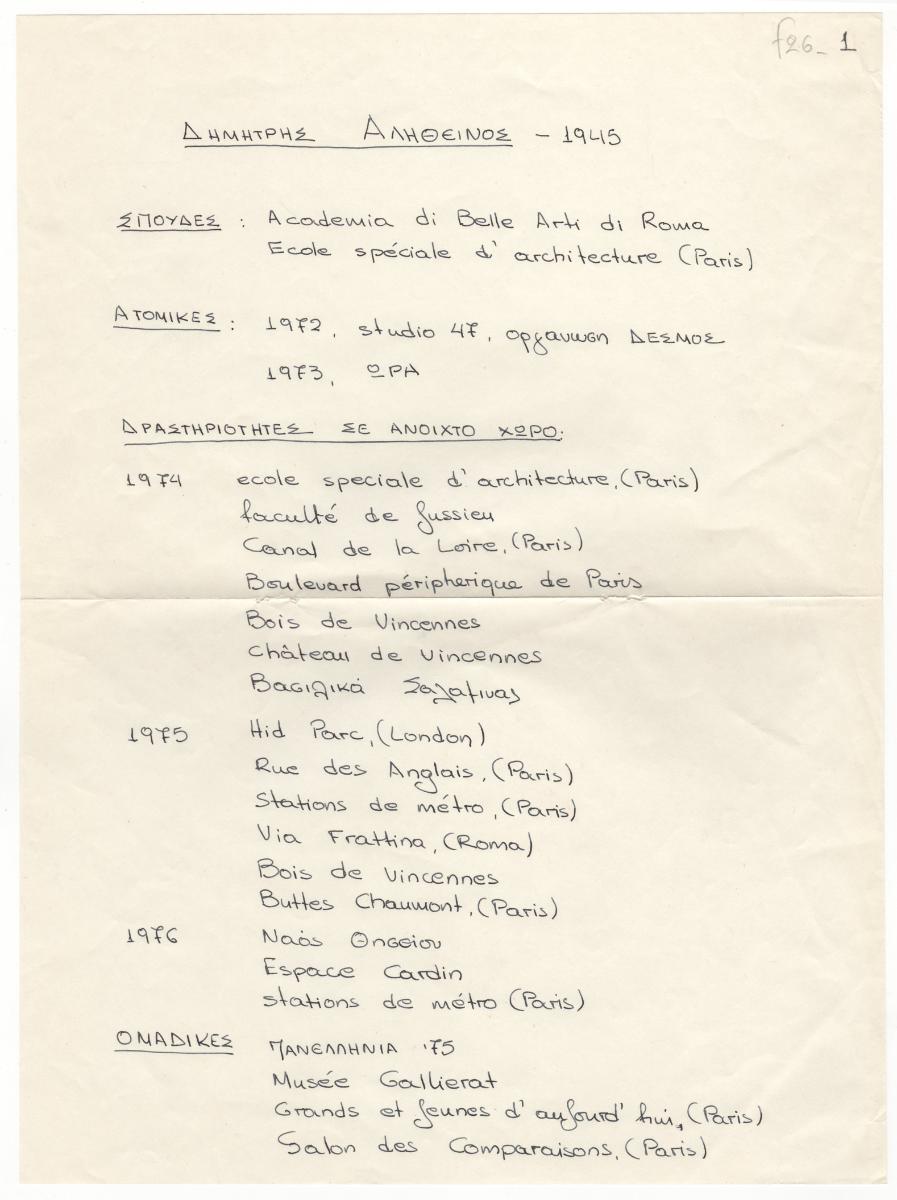 f26_ 1
ΔΗΜΗΤΡΗΣ ΑΛΗΘΕΙΝΟΣ - 1945
ΣΠΟΥΔΕΣ : Academia di Belle Arti di Roma
Ecole spéciale d'architecture (Paris)
ΑΤΟΜΙΚΕΣ : 1972, studio 47, οργανωση ΔΕΣΜΟΣ
1973, ΩΡΑ
ΔΡΑΣΤΗΡΙΟΤΗΤΕΣ ΣΕ ΑΝΟΙΧΤΟ ΧΩΡΟ:
1974 ecole speciale d'architecture, (Paris)
faculté de Jussieu
Canal de la Loire, (Paris)
Boulevard péripherique de Paris
Bois de Vincennes
Château de Vincennes
Βασιλικά Σαλαμινας
1975 Hid Parc, (London)
Rue des Anglais, (Paris)
Stations de métro, (Paris)
Via Frattina, (Roma)
Bois de Vincennes
Buttes Chaumont, (Paris)
1976 Ναός Θησείου
Espace Cardin
stations de métro (Paris)
ΟΜΑΔΙΚΕΣ ΠΑΝΕΛΛΗΝΙΑ '75
Musée Gallierat
Grands et Jeunes d'aujourd'hui, (Paris)
Salon des Comparaisons, (Paris)